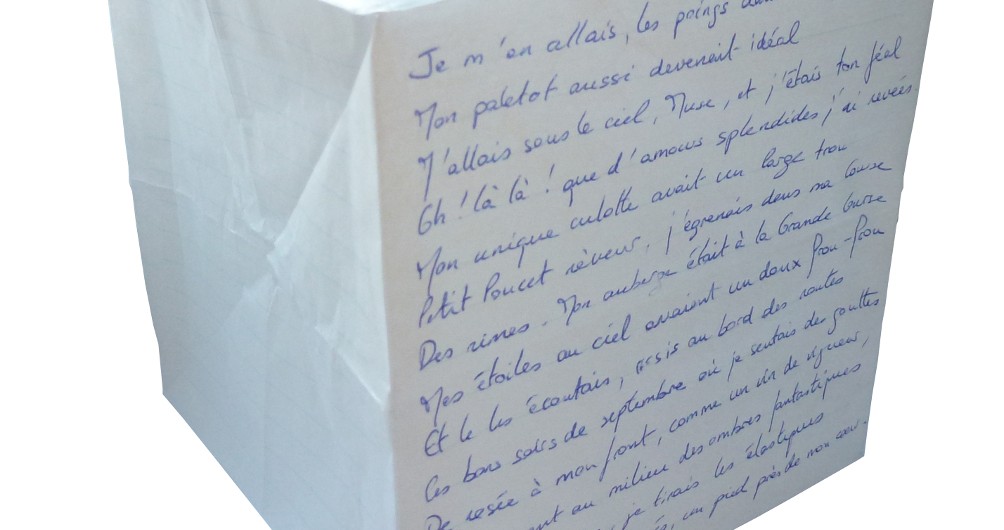 Je m'en allais, les poings dans
Mon paletot aussi devenait idéal
J'allais sous le ciel, Muse, et j'étais ton féal
Oh ! là là ! que d'amours splendides j'ai rêvées
Mon unique culotte avait un large trou
Petit Poucet rêveur, j'égrenais dans ma course
Des rimes. Mon auberge était à la Grande Ourse
Mes étoiles au ciel avaient un doux frou-frou
Et je les écoutais, assis au bord des routes
Ces bons soirs de septembre où je sentais des gouttes
De rosée à mon front, comme un vin de vigueur,
au milieu des ombres fantastiques
je tirais les élastiques
un pied près de mon cœur.